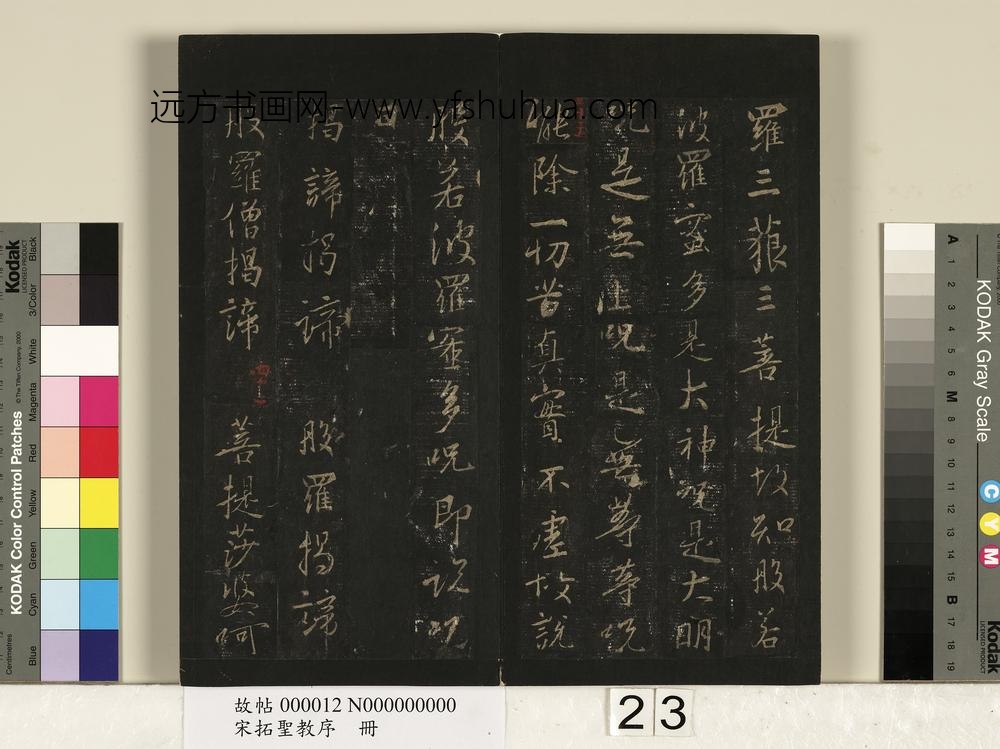 远方书画网-www.yfshuhua.com
羅三藐三菩提故知般若
波羅蜜多是大神呪是大明
呪是無上呪是無等等呪
能除一切苦真實不虛故說
般若波羅蜜多呪即說呪
曰
揭諦揭諦 般羅揭諦
般羅僧揭諦 菩提莎婆呵
故帖 000012 N000000000
宋拓聖教序 冊
23
Kodak
LICENSED PRODUCT
KODAK Color Control Patches
© The Tiffen Company, 2000
Centimetres
Blue
Cyan
Green
Yellow
Red
Magenta
White
3/Color
Black
KODAK Gray Scale
C
Y
M
Kodak
LICENSED PRODUCT
A 1 2 3 4 5 6 M 8 9 10 11 12 13 14 15 B 17 18 19